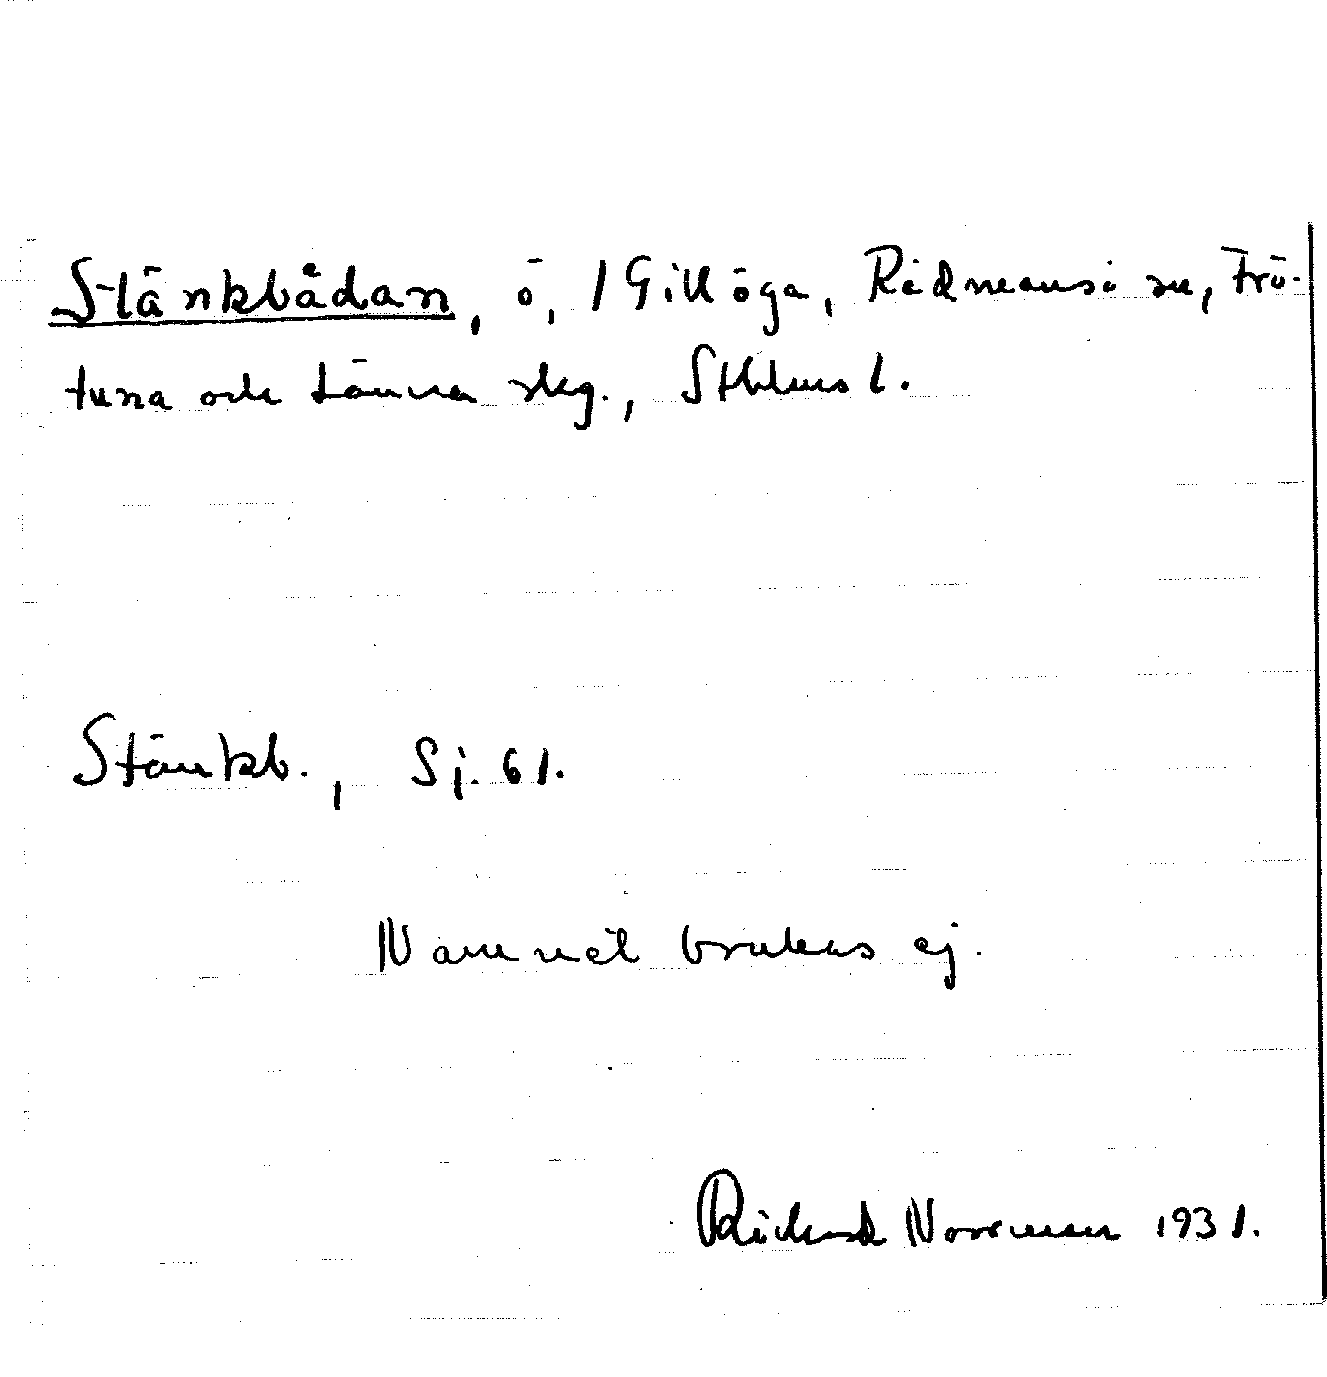 Stänkbådan, ö, I Gillöga, Rådmansö sn, Frö-
tuna och Länna skg., Sthlms l.
Stänkb., Sj. 61.
Namnet brukas ej.
Rickard Norrman 1931.